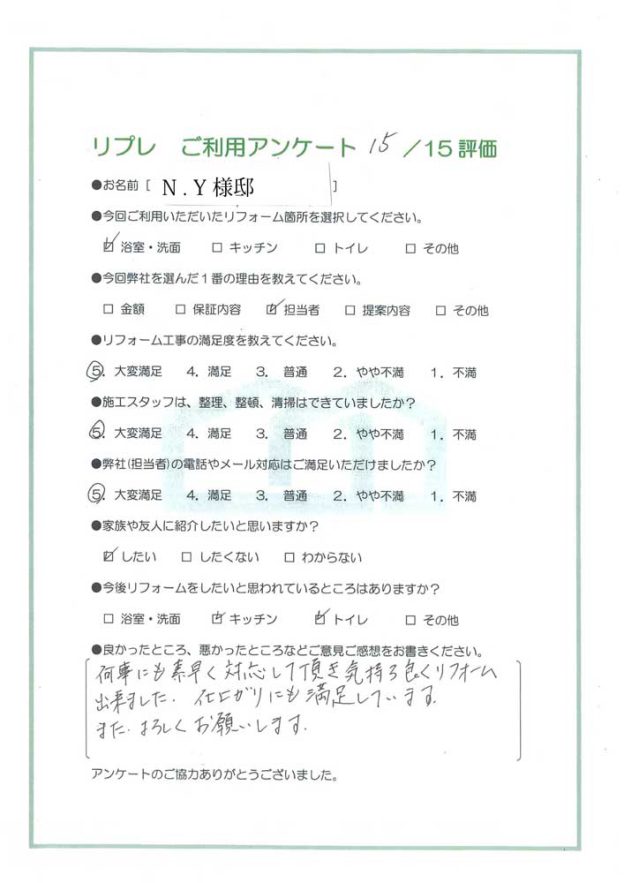 リプレ ご利用アンケート 15 /15評価
●お名前 [ N.Y様邸 ]
●今回ご利用いただいたリフォーム箇所を選択してください。
☑ 浴室・洗面 □ キッチン □ トイレ □ その他
●今回弊社を選んだ1番の理由を教えてください。
□ 金額 □ 保証内容 ☑ 担当者 □ 提案内容 □ その他
●リフォーム工事の満足度を教えてください。
⑤. 大変満足 4. 満足 3. 普通 2. やや不満 1. 不満
●施工スタッフは、整理、整頓、清掃はできていましたか?
⑤. 大変満足 4. 満足 3. 普通 2. やや不満 1. 不満
●弊社(担当者)の電話やメール対応はご満足いただけましたか?
⑤. 大変満足 4. 満足 3. 普通 2. やや不満 1. 不満
●家族や友人に紹介したいと思いますか?
☑ したい □ したくない □ わからない
●今後リフォームをしたいと思われているところはありますか?
□ 浴室・洗面 ☑ キッチン ☑ トイレ □ その他
●良かったところ、悪かったところなどご意見ご感想をお書きください。
何事にも素早く対応して頂き気持ち良くリフォーム
出来ました. 仕上がりにも満足しています.
また. よろしくお願いします.
アンケートのご協力ありがとうございました。